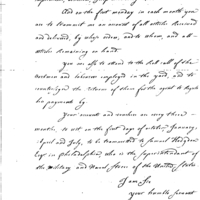 And on the first monday in each month you are
to transmit me an account of all articles received
and delivered, by whose order, and to whom, and all
articles remaining on hand.
You are also to attend to the roll call of the
artificers and laborers employed in the yard, and to
the returns of them for the agent to regulate
his payments by.
Your accounts and vouchers are every three
months, to wit on the first days of October, January,
April and July, to be transmitted to Samuel Hodgdon
Esqr in Philadelphia, who is the Superintendant of
the Military and Naval Stores of the United States.
I am Sir
your humble servant